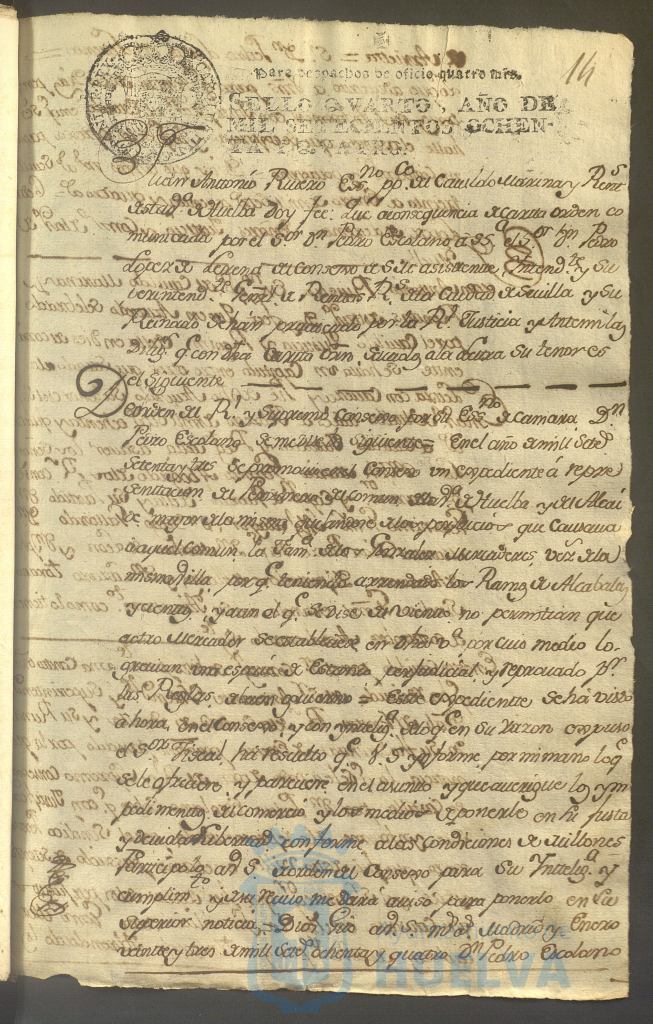 14
Para despachos de oficio quatro mrs.
SELLO QVARTO, AÑO DE
MIL SETECIENTOS OCHEN-
TA Y QUATRO.
Juan Antonio Rivero Essno pp.co del Cavildo Marina y Rent.s
de esta v.a de Huelba doy fee: que a consequencia de Carta orden co
municada por el S.or D.n Pedro Escolano a el S.or D.n Pedro
Lopez de Lerena del Consejo de S. M. asistente, Intend.te y Su
perintend.te Gen.l de Rentas R.s de la Ciudad de Sevilla y su
Reinado se han por la R.l Justicia y Ante mi las
Dilig.s q.e con dha Carta orn. a la letra su tenor es
el siguiente
De orden del R.l y Supremo Consejo por su Ess.no de Camara D.n
Pedro Escolano se me dice lo siguiente = En el año de mill Sete
Setenta y tres se promovio en el Consejo un expediente á repre
sentacion del Personero del Comun de la v.a de Huelba y del Alcal
de mayor de la misma quejandose de los perjuicios que causava
a aquel comun la Fam.a de los Gonzalez Mercaderes, vez.s de la
misma Villa por q.e teniendo arrendado los Ramos de Alcabalas
y cientos y aun el q.e se dise de Viento no permitian que
otro Mercader se estableciese en dha v.a por cuio medio lo
graban una especie de Estanco perjudicial y reprovado p.r
las Reglas de buen govierno = Este expediente se há visto
ahora en el Consejo, y con intelig.a de lo q.e en su razon expuso
el S.or Fiscal, há resuelto q.e V. S. ynforme por mi mano lo q.e
se le ofreciere y pareciere en el asunto y que averigue los ym
pedimentos del comercio y los medios de ponerle en su justa
y devida livertad conforme a las condiciones de Millones
Participolo a V. S. de orden del Consejo para su Intelig.a y
cumplim.to y de su recivo me dará aviso para ponerlo en su
superior noticia = Dios gue a V. S. m.s a.s Madrid y Enero
veinte y tres de mill Sete.s ochenta y quatro D.n Pedro Escolano
HUELVA